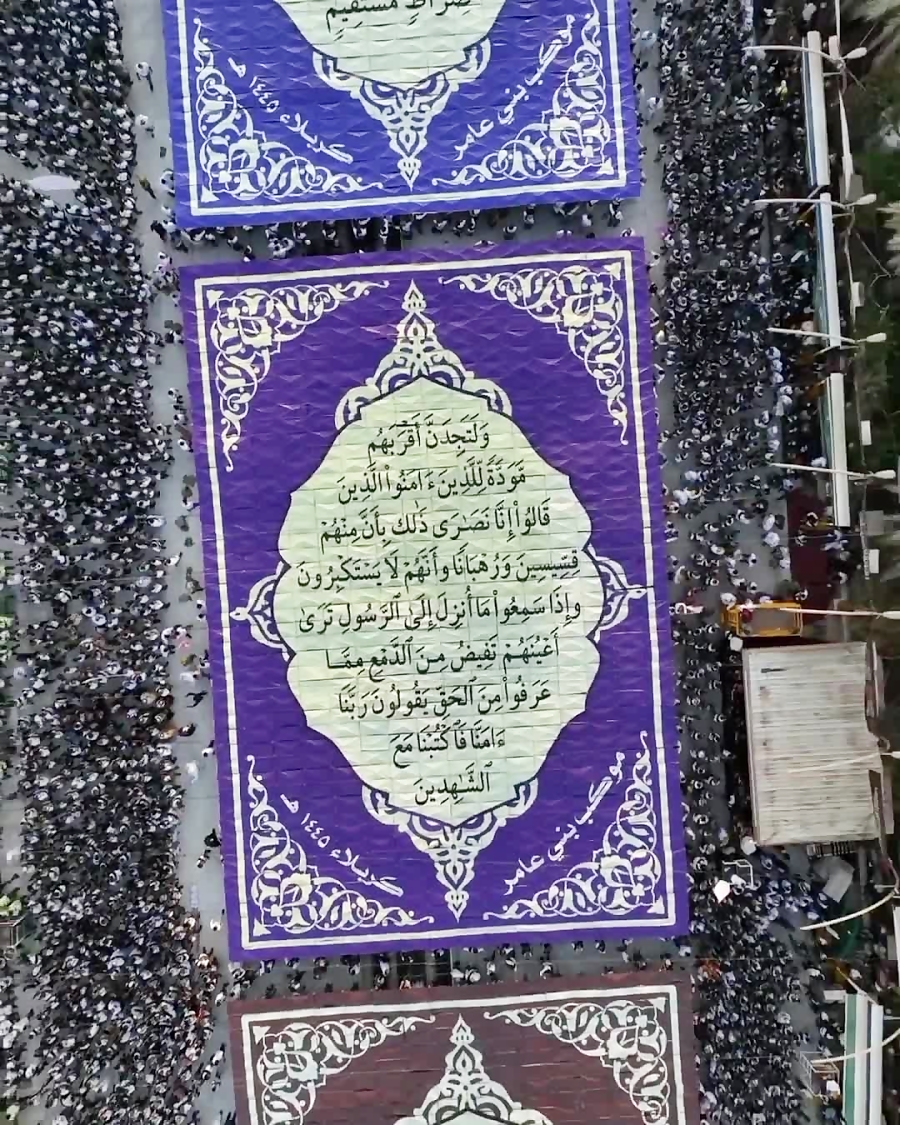 صراط مستقيم
كربلاء ١٤٤٥ هـ
موكب بني عامر
وَلَتَجِدَنَّ أَقْرَبَهُم
مَّوَدَّةً لِّلَّذِينَ ءَامَنُوا۟ الَّذِينَ
قَالُوٓا۟ إِنَّا نَصَٰرَىٰ ذَٰلِكَ بِأَنَّ مِنْهُمْ
قِسِّيسِينَ وَرُهْبَانًا وَأَنَّهُمْ لَا يَسْتَكْبِرُونَ
وَإِذَا سَمِعُوا۟ مَا أُنزِلَ إِلَى ٱلرَّسُولِ تَرَىٰ
أَعْيُنَهُمْ تَفِيضُ مِنَ ٱلدَّمْعِ مِمَّا
عَرَفُوا۟ مِنَ ٱلْحَقِّ يَقُولُونَ رَبَّنَا
ءَامَنَّا فَٱكْتُبْنَا مَعَ
ٱلشَّٰهِدِينَ
كربلاء ١٤٤٥ هـ
موكب بني عامر